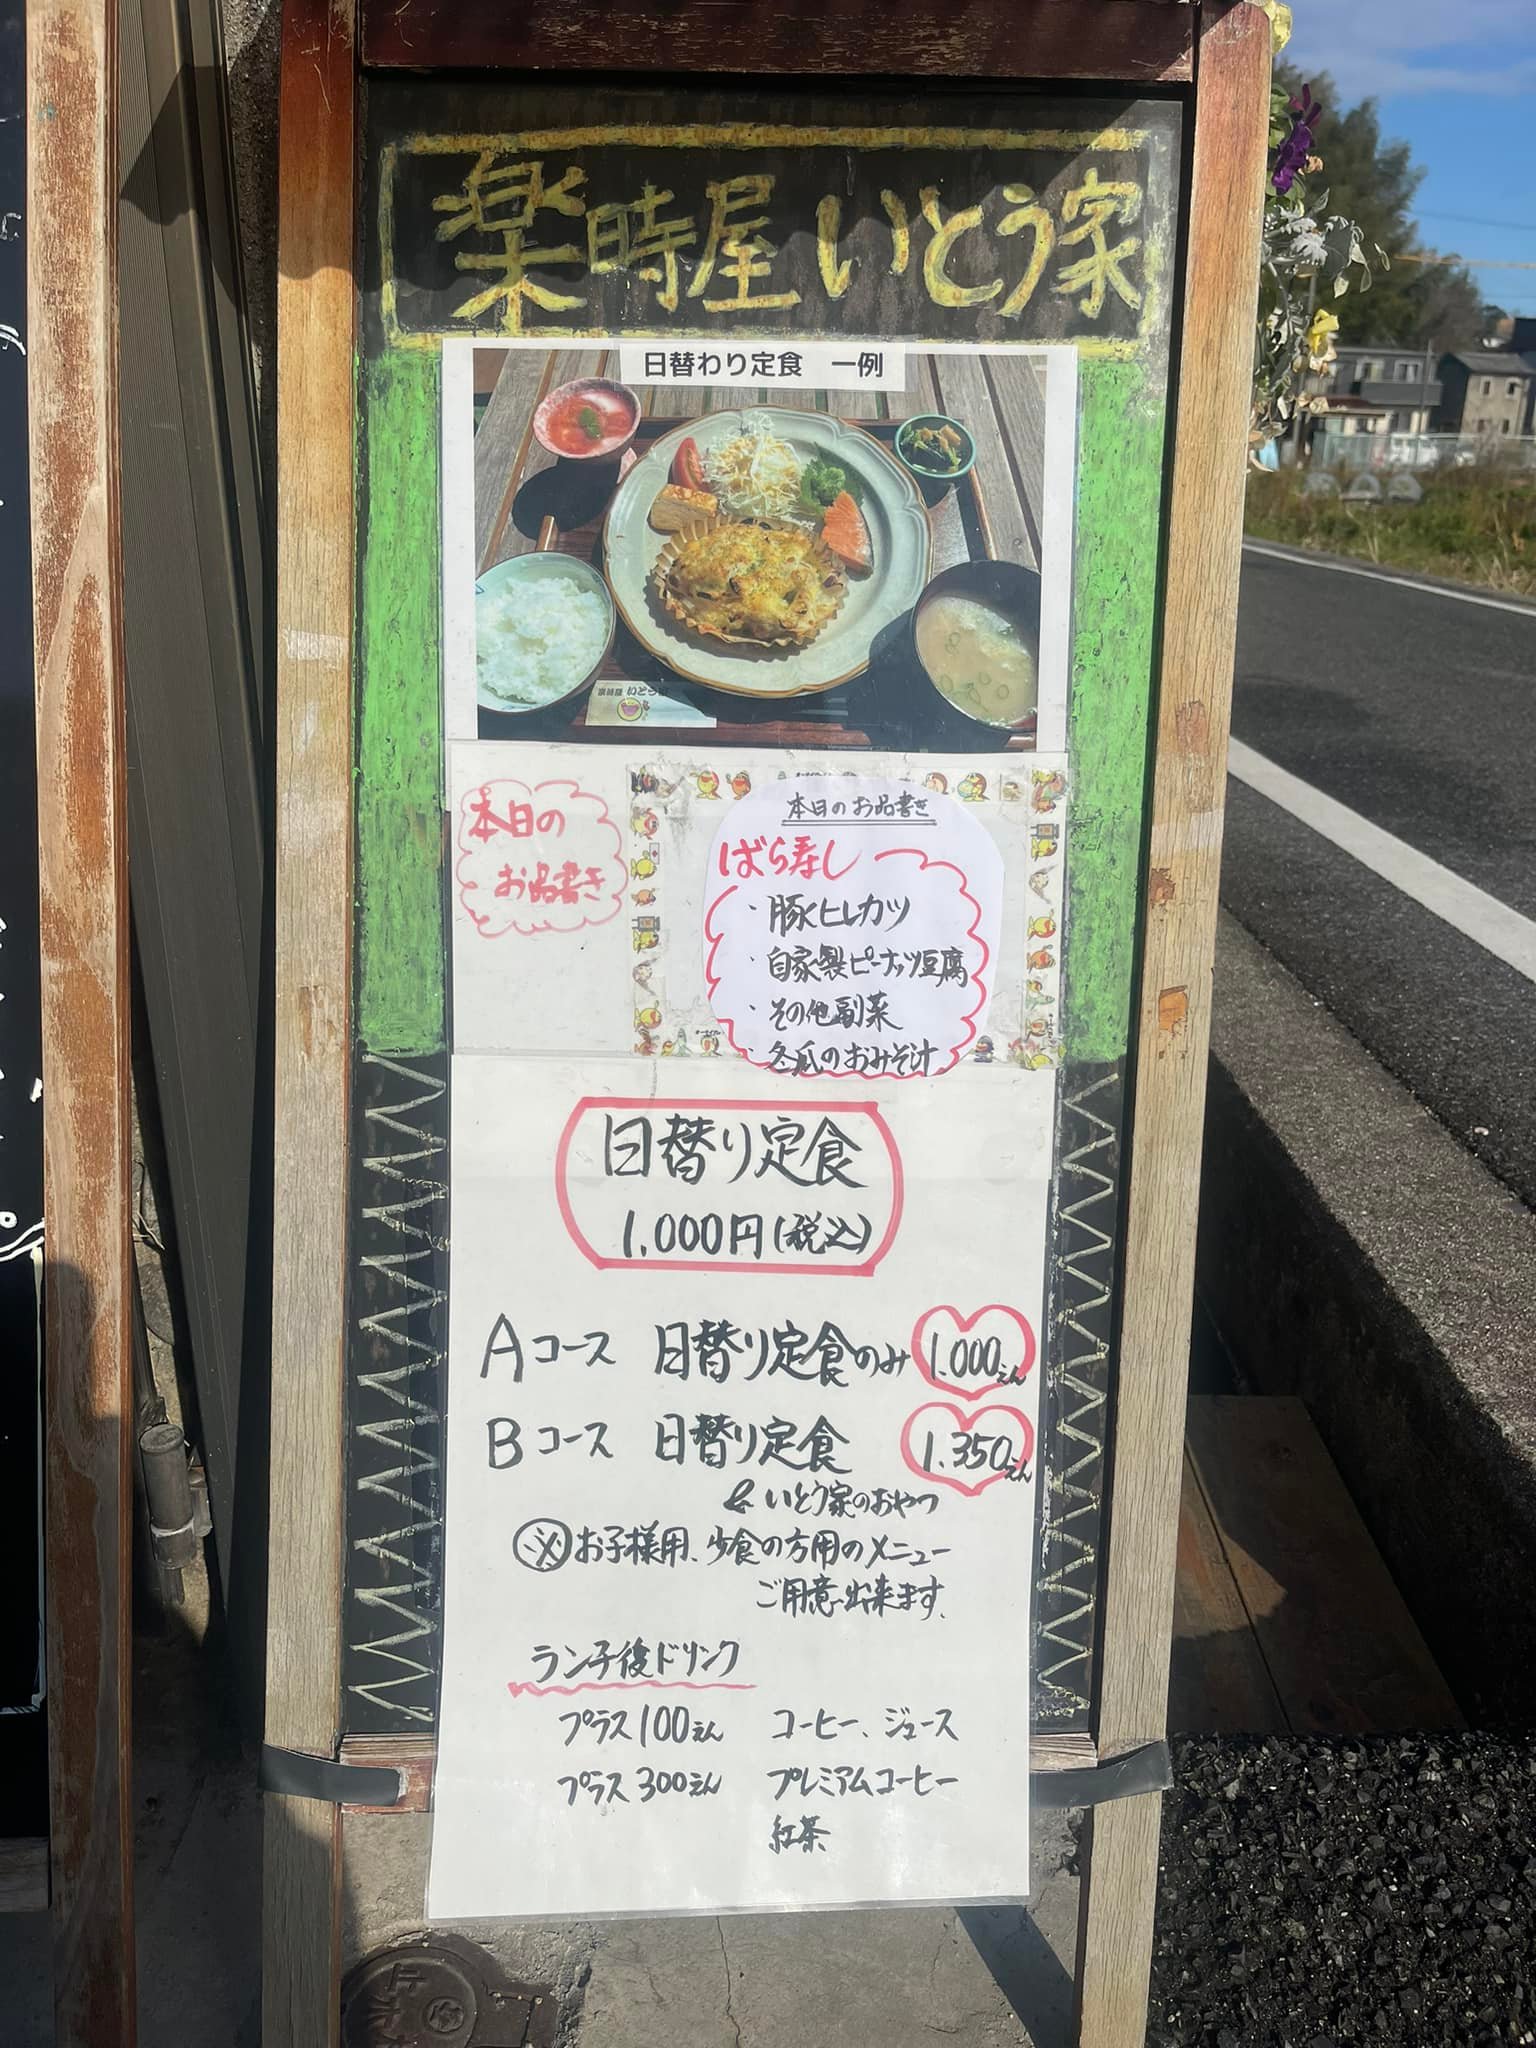 楽時屋 いとう家
日替わり定食　一例
楽時屋 いとう家
本日の
お品書き
本日のお品書き
ばら寿し
・豚ヒレカツ
・自家製ピーナッツ豆腐
・その他副菜
・冬瓜のおみそ汁
日替り定食
1.000円(税込)
Aコース 日替り定食のみ 1.000えん
Bコース 日替り定食 1.350えん
& いとう家のおやつ
※お子様用、少食の方用のメニュー
ご用意出来ます。
ランチ後ドリンク
プラス100えん コーヒー、ジュース
プラス300えん プレミアムコーヒー
紅茶